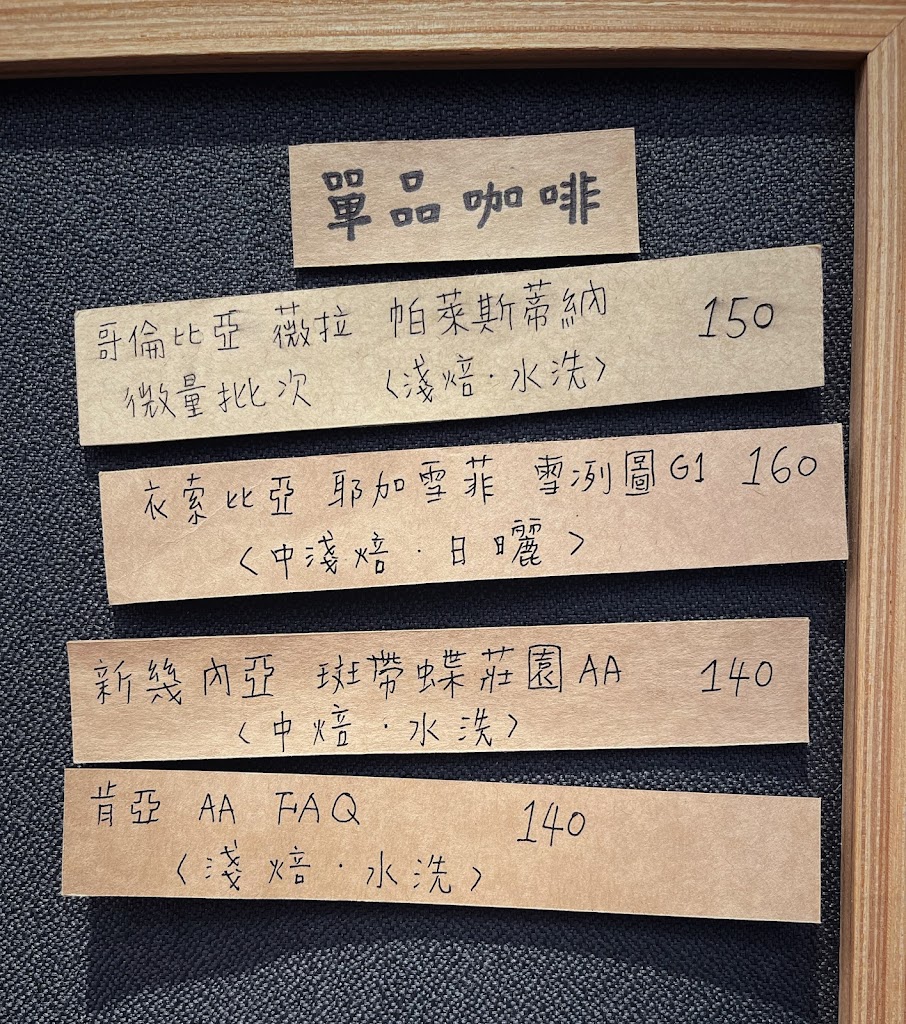 單品咖啡
哥倫比亞 薇拉 帕萊斯蒂納 150
微量批次 〈淺焙·水洗〉
衣索比亞 耶加雪菲 雪冽圖G1 160
〈中淺焙·日曬〉
新幾內亞 斑帶蝶莊園AA 140
〈中焙·水洗〉
肯亞 AA FAQ 140
〈淺焙·水洗〉